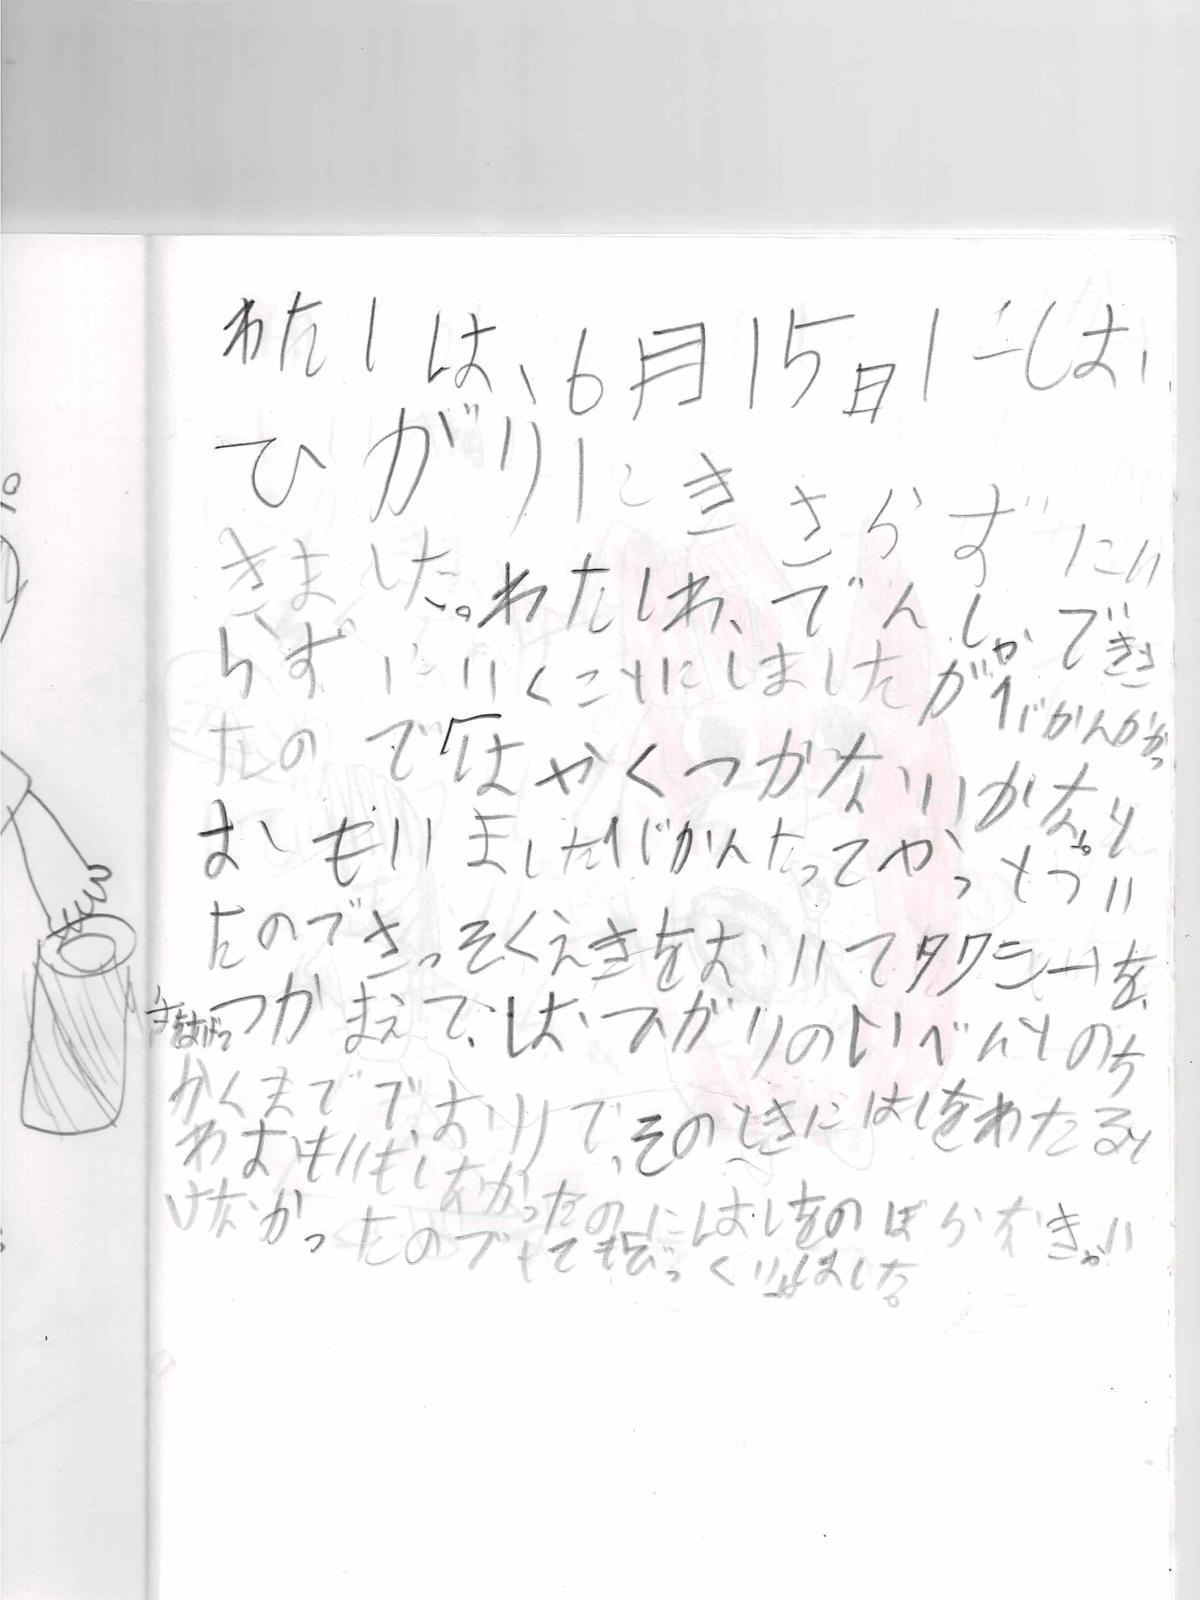 わたしは、6月15日にしお
ひがりにきさらずにい
きました。わたしわ、でんしゃできさ
らずにいくことにしましたが1じかんかかっ
たので「はやくつかないかなと
おもいました1じかんたってやっとつい
たのでさっそくえきをおいてタクシーを、
つかまえて、しおひがりのいべんとのち
かくまででおりて、そのときにはしをわたると
わおもいもしなかったのにはしをのぼらなきゃい
けなかったのでとてもびっくりしました。